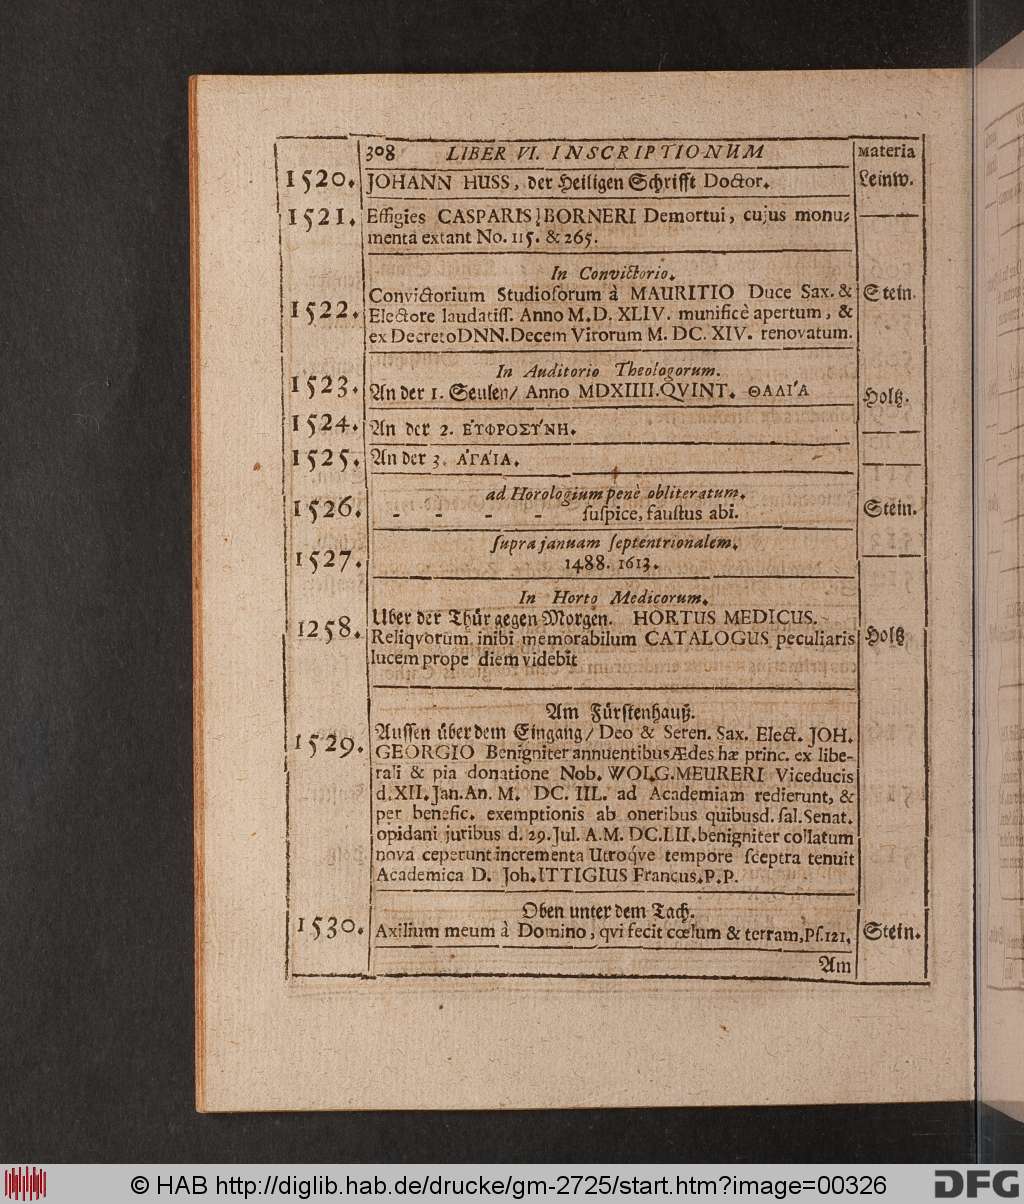 308 LIBER VI. INSCRIPTIONUM Materia
1520. JOHANN HUSS, der Heiligen Schrifft Doctor. Leinw.
1521. Effigies CASPARIS BORNERI Demortui, cujus monu-
menta extant No. 115. & 265.
In Convictorio.
Convictorium Studiosorum à MAURITIO Duce Sax. & Stein.
1522. Electore laudatiss. Anno M.D. XLIV. munificè apertum, &
ex Decreto DNN. Decem Virorum M. DC. XIV. renovatum.
In Auditorio Theologorum.
1523. An der 1. Seulen/ Anno MDXIIII. QVINT. ΘΑΛΊΑ Holtz.
1524. An der 2. ΕΥ̓ΦΡΟΣΎΝΗ.
1525. An der 3. ἈΓΛΑΊΑ.
ad Horologium penè obliteratum.
1526. - - - - suspice, faustus abi. Stein.
supra januam septentrionalem.
1527. 1488. 1613.
In Horto Medicorum.
1258. Uber der Thür gegen Morgen. HORTUS MEDICUS.
Reliqvorum inibi memorabilum CATALOGUS peculiaris Holtz
lucem prope diem videbit
Am Fürstenhauß.
Aussen über dem Eingang/ Deo & Seren. Sax. Elect. JOH.
1529. GEORGIO Benigniter annuentibus Ædes hæ princ. ex libe-
rali & pia donatione Nob. WOLG. MEURERI Viceducis
d. XII. Jan. An. M. DC. IIL. ad Academiam redierunt, &
per benefic. exemptionis ab oneribus quibusd. sal. Senat.
opidani juribus d. 29. Jul. A.M. DC.LII. benigniter collatum
nova ceperunt incrementa Utroqve tempore sceptra tenuit
Academica D. Joh. ITTIGIUS Francus. P. P.
Oben unter dem Tach.
1530. Axilium meum à Domino, qvi fecit cœlum & terram, Ps. 121. Stein.
Am
© HAB http://diglib.hab.de/drucke/gm-2725/start.htm?image=00326
DFG